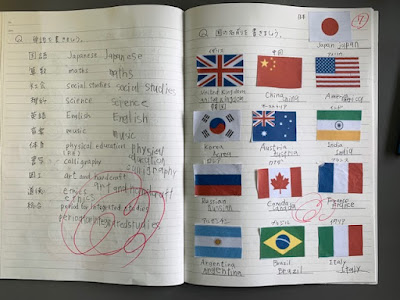 Q. 単語を書きましょう。
国語 Japanese Japanese
算数 maths maths
社会 social studies social studies
理科 science science
英語 English English
音楽 music music
体育 physical education physical education
書写 calligraphy calligraphy
図工 art and handcraft art and handcraft
道徳 ethics ethics
総合 period for integrated studies
Q. 国の名前を書きましょう。
日本
Japan Japan
イギリス
中国
United Kingdom
China China
America
韓国
オーストラリア
Korea Korea
Austria
India India
ロシア
カナダ
フランス
Russian Russian
Canada Canada
France
アルゼンチン
ブラジル
イタリア
Argentina Argentina
Brazil Brazil
Italy Italy